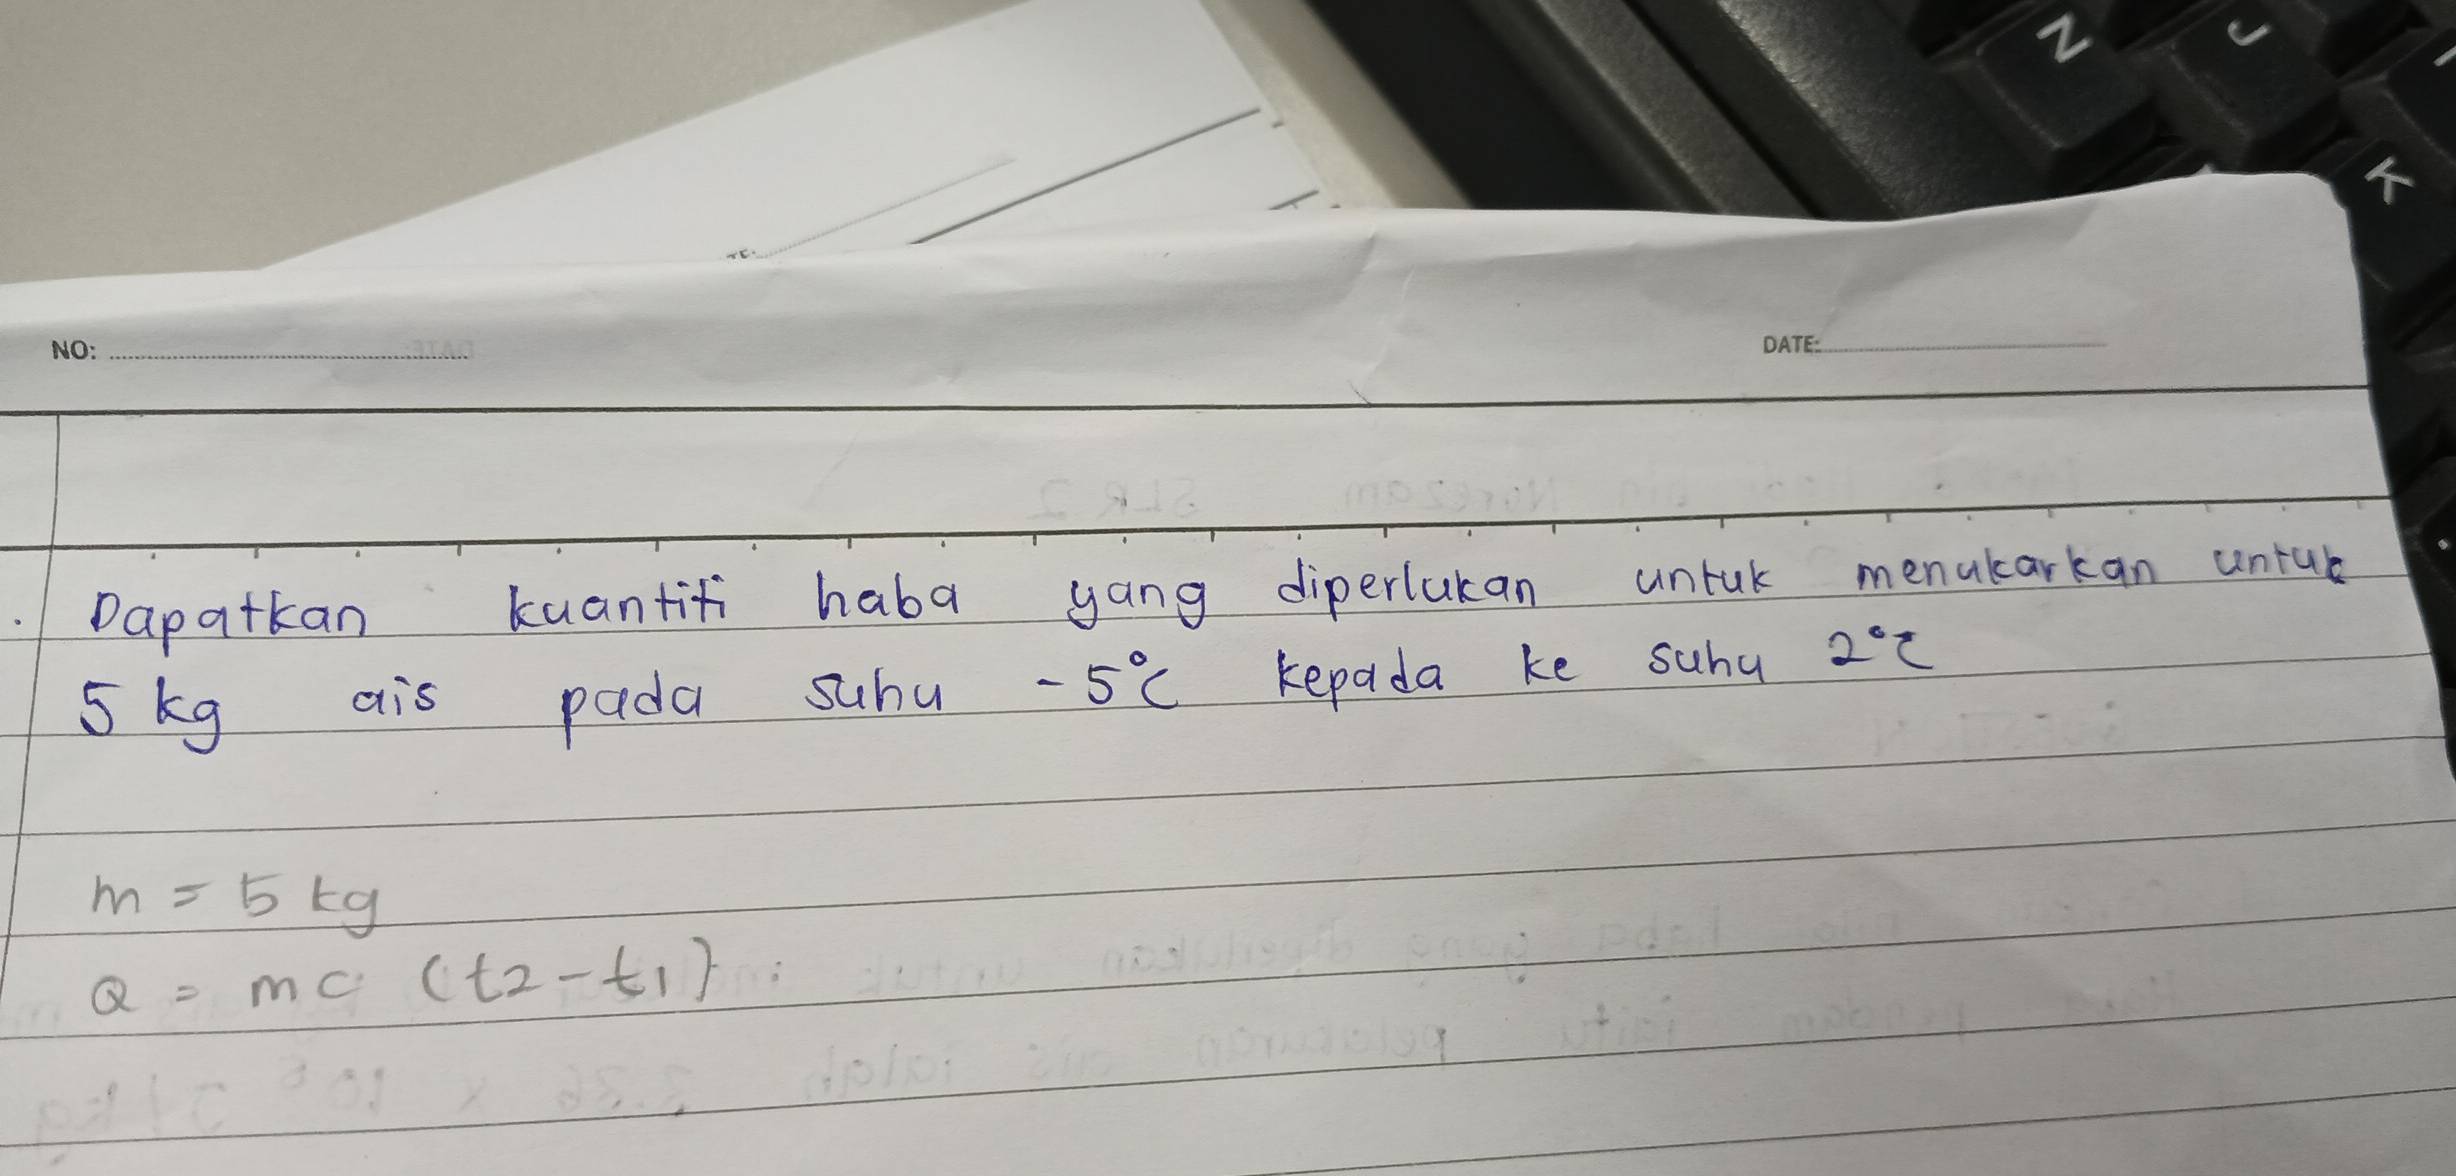 N J
K
NO: DATE:
Dapatkan kuantiti haba yang diperlukan untuk menukarkan untuk
5 kg ais pada suhu -5°C kepada ke suhu 2°C
m = 5 kg
Q = mc (t2-t1)